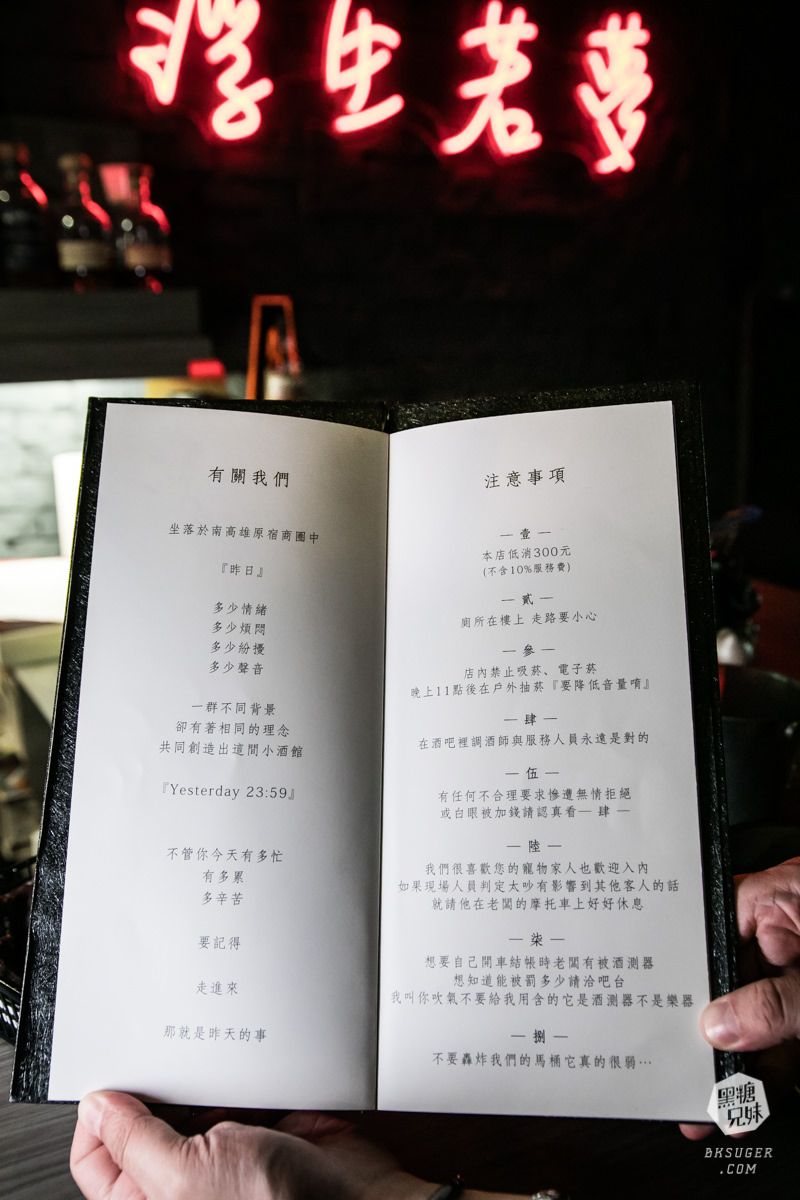 浮生若夢
有關我們
坐落於南高雄原宿商圈中
『昨日』
多少情緒
多少煩悶
多少紛擾
多少聲音
一群不同背景
卻有著相同的理念
共同創造出這間小酒館
『Yesterday 23:59』
不管你今天有多忙
有多累
多辛苦
要記得
走進來
那就是昨天的事
注意事項
— 壹 —
本店低消300元
(不含10%服務費)
— 貳 —
廁所在樓上 走路要小心
— 參 —
店內禁止吸菸、電子菸
晚上11點後在戶外抽菸『要降低音量唷』
— 肆 —
在酒吧裡調酒師與服務人員永遠是對的
— 伍 —
有任何不合理要求慘遭無情拒絕
或白眼被加錢請認真看— 肆 —
— 陸 —
我們很喜歡您的寵物家人也歡迎入內
如果現場人員判定太吵有影響到其他客人的話
就請他在老闆的摩托車上好好休息
— 柒 —
想要自己開車結帳時老闆有被酒測器
想知道能被罰多少請洽吧台
我叫你吹氣不要給我用含的它是酒測器不是樂器
— 捌 —
不要轟炸我們的馬桶它真的很弱…
黑糖
兄妹
BKSUGER
.COM